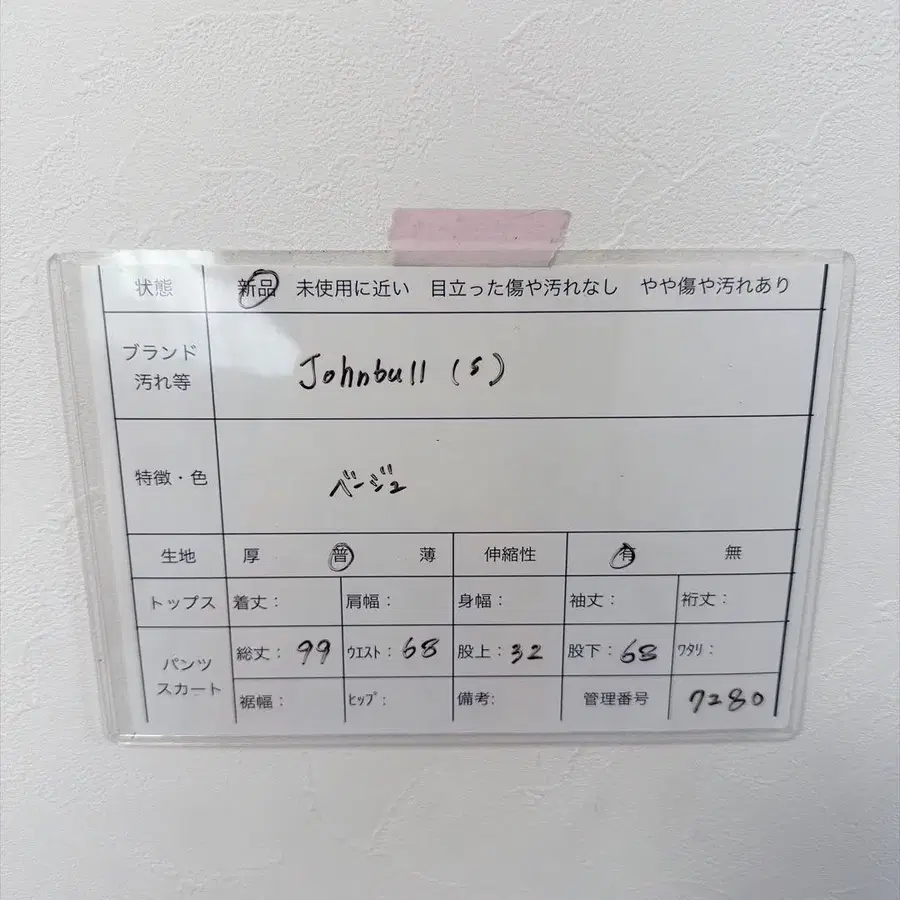 状態 新品 未使用に近い 目立った傷や汚れなし やや傷や汚れあり
ブランド
汚れ等 Johnbull (S)
特徴・色 ベージュ
生地 厚 普 薄 伸縮性 有 無
トップス 着丈： 肩幅： 身幅： 袖丈： 裄丈：
パンツ
スカート
総丈：99 ｳｴｽﾄ：68 股上：32 股下：68 ﾜﾀﾘ：
裾幅： ﾋｯﾌﾟ： 備考： 管理番号 7280